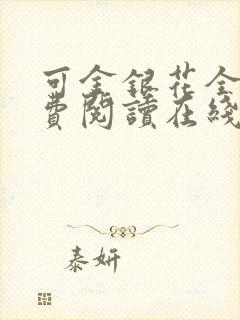 可金銀花全
費閱讀在綫
泰妍